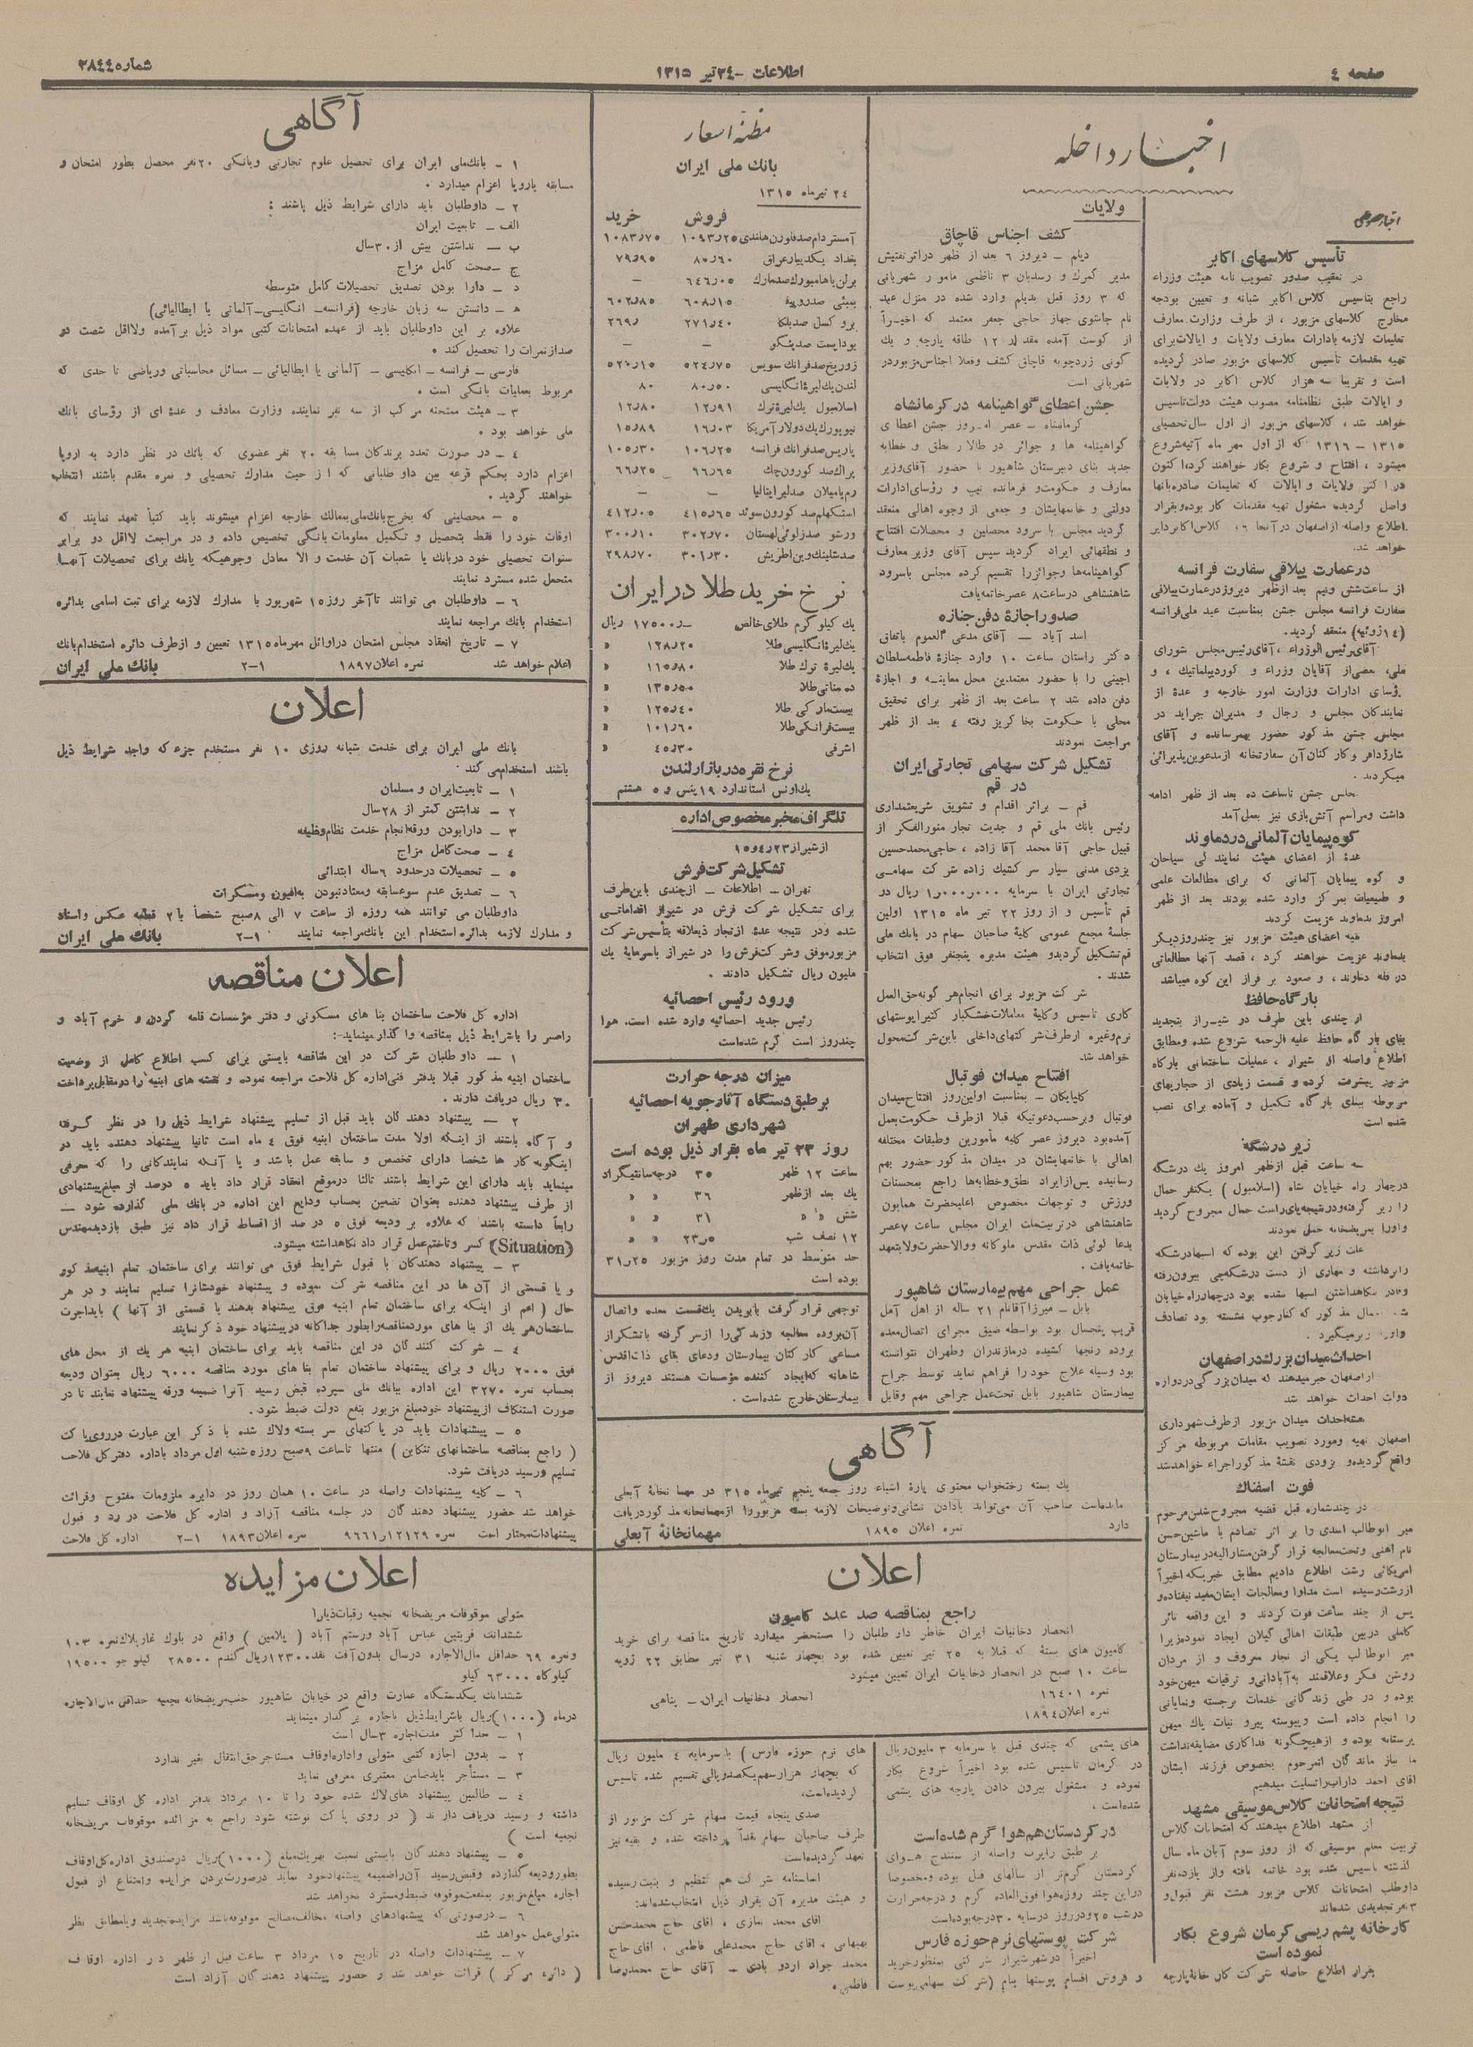 صفحه ٤
اطلاعات - ٢٤ تیر ١٣١٥
شماره ٢٨٤٤
اخبار داخله
تأسیس کلاسهای اکابر
در تعقیب صدور تصویب نامه هیئت وزراء
راجع بتاسیس کلاس اکابر شبانه و تعیین بودجه
مخارج کلاسهای مزبور ، از طرف وزارت معارف
تعلیمات لازمه بادارات معارف ولایات و ایالات برای
تهیه مقدمات تاسیس کلاسهای مزبور صادر گردیده
است و تقریبا سه هزار کلاس اکابر در ولایات
و ایالات طبق نظامنامه مصوب هیئت دولت تاسیس
خواهد شد ، کلاسهای مزبور از اول سال تحصیلی
١٣١٥ - ١٣١٦ که از اول مهر ماه آتیه شروع
میشود ، افتتاح و شروع بکار خواهند کرد، اکنون
در اکثر ولایات و ایالات که تعلیمات صادره بانها
واصل گردیده مشغول تهیه مقدمات کار بوده و بقرار
خواهد شد.
در عمارت ییلاقی سفارت فرانسه
از ساعت شش ونیم بعد از ظهر دیروز در عمارت ییلاقی
سفارت فرانسه مجلس جشن بمناسبت عید ملی فرانسه
(١٤ ژوئیه) منعقد گردید.
آقای رئیس الوزراء ، آقای رئیس مجلس شورای
ملی، بعضی از آقایان وزراء و کوردیپلماتیک ، و
رؤسای ادارات وزارت امور خارجه و عدۀ از
نمایندگان مجلس و رجال و مدیران جراید در
مجلس جشن مذکور حضور بهمرسانده و آقای
شارژدافر و کارکنان آن سفارتخانه از مدعوین پذیرائی
میکردند .
مجلس جشن تاساعت ده بعد از ظهر ادامه
داشت و مراسم آتش بازی نیز بعمل آمد
کوه پیمایان آلمانی در دماوند
عدۀ از اعضای هیئت نمایندگی سیاحان
و کوه پیمایان آلمانی که برای مطالعات علمی
و طبیعیات بمرکز وارد شده بودند بعد از ظهر
امروز بدماوند عزیمت کردند
بقیه اعضای هیئت مزبور نیز چندروز دیگر
بدماوند عزیمت خواهند کرد ، قصد آنها مطالعاتی
در قله دماوند ، و صعود بر فراز این کوه میباشد
بارگاه حافظ
از چندی باین طرف در شیراز بتجدید
بنای بارگاه حافظ علیه الرحمه شروع شده و مطابق
اطلاع واصله از شیراز ، عملیات ساختمانی بارگاه
مزبور پیشرفت کرده و قسمت زیادی از حجاریهای
مربوطه ببنای بارگاه تکمیل و آماده برای نصب
شده است
زیر درشگه
سه ساعت قبل از ظهر امروز یک درشگه
در چهار راه خیابان شاه (اسلامبول) یکنفر حمال
را زیر گرفته و در نتیجه پای راست حمال مجروح گردید
و او را بمریضخانه حمل نمودند
علت زیر گرفتن این بوده که اسبها درشگه
را برداشته و مهاری از دست درشگه چی بیرون رفته
احداث میدان بزرگ در اصفهان
از اصفهان خبر میدهند که میدان بزرگی در دروازه
دولت احداث خواهد شد
نقشه احداث میدان مزبور از طرف شهرداری
اصفهان تهیه و مورد تصویب مقامات مربوطه مرکز
واقع گردیده و بزودی نقشۀ مذکور اجراء خواهد شد
فوت اسفناک
در چند شماره قبل قضیه مجروح شدن مرحوم
میر ابوطالب اسدی را بر اثر تصادم با ماشین حسن
نام آهنی و تحت معالجه قرار گرفتن مشارالیه در بیمارستان
امریکائی رشت اطلاع دادیم مطابق خبریکه اخیراً
از رشت رسیده است مداوا و معالجات ایشان مفید نیفتاده و
پس از چند ساعت فوت کردند و این واقعه تأثر
کاملی در بین طبقات اهالی گیلان ایجاد نمود زیرا
میر ابوطالب یکی از تجار معروف و از مردان
روشن فکر و علاقمند به آبادانی و ترقیات میهن خود
بوده و در طی زندگانی خدمات برجسته و نمایانی
را انجام داده است و پیوسته پیرو نیات پاک میهن
پرستانه بوده و از هیچگونه فداکاری مضایقه نداشت
ما بازماندگان آنمرحوم بخصوص فرزند ایشان
آقای احمد داراب را تسلیت میدهیم
نتیجه امتحانات کلاس موسیقی مشهد
از مشهد اطلاع میدهند که امتحانات کلاس
تربیت معلم موسیقی که از روز سوم آبان ماه سال
گذشته تاسیس شده بود خاتمه یافته و از یازده نفر
داوطلب امتحانات کلاس مزبور هشت نفر قبول و
٣ نفر تجدیدی شده اند
کارخانه پشم ریسی کرمان شروع بکار
نموده است
بقرار اطلاع حاصله شرکت کارخانۀ پارچه
ولایات
کشف اجناس قاچاق
دیلم - دیروز ٦ بعد از ظهر در اثر تفتیش
مدیر گمرک و رسدبان ٣ ناظمی مامور شهربانی
که ٣ روز قبل بدیلم وارد شده در منزل عبد
نام جاشوی جهاز حاجی جعفر معتمد که اخیراً
از کویت آمده مقدار ١٢ طاقه پارچه و یک
گونی زردچوبه قاچاق کشف و فعلا اجناس مزبور در
شهربانی است
جشن اعطای گواهینامه در کرمانشاه
کرمانشاه - عصر امروز جشن اعطای
گواهینامه ها و جوائز در طالار نطق و خطابه
جدید بنای دبیرستان شاهپور با حضور آقای وزیر
معارف و حکومت و فرمانده تیپ و رؤسای ادارات
دولتی و خانمهایشان و جمعی از وجوه اهالی منعقد
گردید مجلس با سرود محصلین و محصلات افتتاح
و نطقهائی ایراد گردید سپس آقای وزیر معارف
گواهینامه ها و جوائز را تقسیم کرده مجلس با سرود
شاهنشاهی در ساعت ٨ عصر خاتمه یافت
صدور اجازۀ دفن جنازه
اسد آباد - آقای مدعی العموم باتفاق
دکتر راستان ساعت ١٠ وارد جنازۀ فاطمه سلطان
اجینی را با حضور معتمدین محل معاینه و اجازۀ
دفن داده شد ٢ ساعت بعد از ظهر برای تحقیق
محلی با حکومت بخاکریز رفته ٤ بعد از ظهر
مراجعت نمودند
تشکیل شرکت سهامی تجارتی ایران
در قم
قم - براثر اقدام و تشویق شریعتمداری
رئیس بانک ملی قم و جدیت تجار منورالفکر از
قبیل حاجی آقا محمد آقا زاده ، حاجی محمدحسین
یزدی مدنی سیار سرکشیک زاده شرکت سهامی
تجارتی ایران با سرمایه ١٫٠٠٠٫٠٠٠ ریال در
قم تأسیس و از روز ٢٢ تیر ماه ١٣١٥ اولین
جلسۀ مجمع عمومی کلیۀ صاحبان سهام در بانک ملی
قم تشکیل گردید و هیئت مدیره پنجنفر فوق انتخاب
شدند .
شرکت مزبور برای انجام هر گونه حق العمل
کاری تاسیس وکلیۀ معاملات خشکبار کتیرا پوستهای
نرم وغیره از طرف شرکتهای داخلی باین شرکت محول
خواهد شد.
افتتاح میدان فوتبال
گلپایگان - بمناسبت اولین روز افتتاح میدان
فوتبال و برحسب دعوتیکه قبلا از طرف حکومت بعمل
آمده بود دیروز عصر کلیه مأمورین و طبقات مختلفه
اهالی با خانمهایشان در میدان مذکور حضور بهم
رسانیده پس از ایراد نطق و خطابه ها راجع بمحسنات
ورزش و توجهات مخصوص اعلیحضرت همایون
شاهنشاهی در تربیت ملت ایران مجلس ساعت ٧ عصر
بدعا گوئی ذات مقدس ملوکانه و والاحضرت ولایتعهد
خاتمه یافت.
عمل جراحی مهم بیمارستان شاهپور
بابل - میرزا آقانام ٢١ ساله از اهل آمل
قریب پنجسال بود بواسطه ضیق مجرای اتصال معده
بروده رنجها کشیده در مازندران و طهران نتوانسته
بود وسیله علاج خود را فراهم نماید توسط جراح
بیمارستان شاهپور بابل تحت عمل جراحی مهم و قابل
مظنه اسعار
بانک ملی ایران
٢٤ تیرماه ١٣١٥
فروش خرید
آمستردام صد فلورن هلندی ١٠٩٣٫٢٥ ١٠٨٣٫٧٥
بغداد یکدینار عراق ٨٠٫٦٠ ٧٩٫٩٥
برلن یا هامبورک صدمارک ٦٤٦٫٠٥ -
بمبئی صدروپیه ٦٠٨٫١٥ ٦٠٢٫٨٥
بروکسل صدبلگا ٢٧١٫٤٠ ٢٦٩٫
بوداپست صدپنگو - -
زوریخ صد فرانک سویس ٥٢٤٫٧٥ ٥٢٠٫١٥
لندن یک لیرۀ انگلیسی ٨٠٫٥٠ ٨٠
اسلامبول یک لیرۀ ترک ١٢٫٩١ ١٢٫٨٠
نیویورک یک دولار آمریکا ١٦٫٠٣ ١٥٫٨٩
پاریس صد فرانک فرانسه ١٠٦٫٢٥ ١٠٥٫٣٠
پراک صد کورون چک ٦٦٫٦٥ ٦٦٫٢٥
رم یا میلان صد لیر ایتالیا - -
استکهلم صد کورون سوئد ٤١٥٫٦٥ ٤١٢٫٠٥
ورشو صد زلوتی لهستان ٣٠٢٫٧٠ ٣٠٠٫١٠
صد شلینک وین اطریش ٣٠١٫٣٠ ٢٩٨٫٧٠
نرخ خرید طلا در ایران
یک کیلو گرم طلای خالص ١٧٥٠٠٫- ریال
یک لیرۀ انگلیسی طلا ١٢٨٫٢٠ «
یک لیرۀ ترک طلا ١١٥٫٨٠ «
ده مناتی طلا ١٣٥٫٥٠ «
بیست مارکی طلا ١٢٥٫٤٠ «
بیست فرانکی طلا ١٠١٫٦٠ «
اشرفی ٤٥٫٣٠ «
نرخ نقره در بازار لندن
یک اونس استاندارد ١٩ پنس و ٥ هشتم
تلگراف مخبر مخصوص اداره
از شیراز ١٥٫٤٫٢٣
تشکیل شرکت فرش
تهران - اطلاعات - از چندی باین طرف
برای تشکیل شرکت فرش در شیراز اقداماتی
شده و در نتیجه عدۀ از تجار ذیعلاقه بتأسیس شرکت
مزبور موفق و شرکت فرش را در شیراز با سرمایۀ یک
ملیون ریال تشکیل دادند .
ورود رئیس احصائیه
رئیس جدید احصائیه وارد شده است. هوا
چند روز است گرم شده است
میزان درجه حرارت
بر طبق دستگاه آثار جویه احصائیه
شهرداری طهران
روز ٢٣ تیر ماه بقرار ذیل بوده است
ساعت ١٢ ظهر ٣٥ درجه سانتیگراد
یک بعد از ظهر ٣٦ « «
شش « « ٣١ « «
١٢ نصف شب ٢٣٫٥ « «
حد متوسط در تمام مدت روز مزبور ٣١٫٢٥
بوده است
توجهی قرار گرفت با بریدن یک قسمت معده و اتصال
آن بروده معالجه و زندگی را از سر گرفته با تشکر از
مساعی کارکنان بیمارستان و دعای بقای ذات اقدس
شاهانه که ایجاد کننده مؤسسات هستند دیروز از
بیمارستان خارج شده است .
آگاهی
یک بسته رختخواب محتوی پارۀ اشیاء روز جمعه پنجم تیر ماه ٣١٥ در مهمانخانۀ آبعلی
مانده است صاحب آن می تواند با دادن نشانی و توضیحات لازمه بسته مزبور را از مهمانخانه مذکور دریافت
دارد نمره اعلان ١٨٩٥ مهمانخانۀ آبعلی
اعلان
راجع بمناقصه صد عدد کامیون
انحصار دخانیات ایران خاطر داوطلبان را مستحضر میدارد تاریخ مناقصه برای خرید
کامیون های بستۀ که قبلا به ٢٥ تیر تعیین شده بود بچهار شنبه ٣١ تیر مطابق ٢٢ ژویه
ساعت ١٠ صبح در انحصار دخانیات ایران تعیین میشود
نمره ١٦٤٠١ انحصار دخانیات ایران - پناهی
نمره اعلان ١٨٩٤
های پشمی که چندی قبل با سرمایه ٣ ملیون ریال
در کرمان تاسیس شده بود اخیراً شروع بکار
نموده و مشغول بیرون دادن پارچه های پشمی
شده است .
در کردستان هم هوا گرم شده است
بر طبق راپرت واصله از سنندج هوای
کردستان گرمتر از سالهای قبل بوده و مخصوصا
در این چند روزه هوا فوق العاده گرم و درجه حرارت
در شب ٢٥ و در روز در سایه ٣٠ درجه بوده است
شرکت پوستهای نرم حوزه فارس
اخیراً در شهر شیراز شرکتی بمنظور خرید
و فروش اقسام پوستها بنام (شرکت سهامی پوست
های نرم حوزه فارس) با سرمایه ٤ ملیون ریال
که بچهار هزار سهم یکصد ریالی تقسیم شده تاسیس
گردیده است.
صدی پنجاه قیمت سهام شرکت مزبور از
طرف صاحبان سهام نقداً پرداخته شده و بقیه نیز
تعهد گردیده است.
اساسنامه شرکت هم تنظیم و بثبت رسیده
و هیئت مدیره آن بقرار ذیل انتخاب شده اند:
آقای محمد نمازی ، آقای حاج محمدحسن
بهبهانی ، آقای حاج محمدعلی فاطمی ، آقای حاج
محمد جواد اردوبادی - آقای حاج محمدرضا
فاطمی .
آگاهی
١ - بانک ملی ایران برای تحصیل علوم تجارتی و بانکی ٢٠ نفر محصل بطور امتحان و
مسابقه باروپا اعزام میدارد .
٢ - داوطلبان باید دارای شرایط ذیل باشند :
الف - تابعیت ایران
ب - نداشتن بیش از ٣٠ سال
ج - صحت کامل مزاج
د - دارا بودن تصدیق تحصیلات کامل متوسطه
ه - دانستن سه زبان خارجه (فرانسه - انگلیسی - آلمانی یا ایطالیائی)
علاوه بر این داوطلبان باید از عهده امتحانات کتبی مواد ذیل برآمده ولااقل شصت در
صد از نمرات را تحصیل کند .
فارسی - فرانسه - انگلیسی - آلمانی یا ایطالیائی - مسائل محاسباتی و ریاضی تا حدی که
مربوط بعملیات بانکی است .
٣ - هیئت ممتحنه مرکب از سه نفر نماینده وزارت معارف و عدۀ ای از رؤسای بانک
ملی خواهد بود .
٤ - در صورت تعدد برندگان مسابقه ٢٠ نفر عضوی که بانک در نظر دارد به اروپا
اعزام دارد بحکم قرعه بین داوطلبانی که از حیث مدارک تحصیلی و نمره مقدم باشند انتخاب
خواهند گردید .
٥ - محصلینی که بخرج بانک ملی بممالک خارجه اعزام میشوند باید کتباً تعهد نمایند که
اوقات خود را فقط بتحصیل و تکمیل معلومات بانکی تخصیص داده و در مراجعت لااقل دو برابر
سنوات تحصیلی خود در بانک یا شعبات آن خدمت و الا معادل وجوهیکه بانک برای تحصیلات آنها
متحمل شده مسترد نمایند
٦ - داوطلبان می توانند تا آخر روز ١٥ شهریور با مدارک لازمه برای ثبت اسامی بدائره
استخدام بانک مراجعه نمایند
٧ - تاریخ انعقاد مجلس امتحان در اوائل مهر ماه ١٣١٥ تعیین و از طرف دائره استخدام بانک
اعلام خواهد شد نمره اعلان ١٨٩٧ ١-٢ بانک ملی ایران
اعلان
بانک ملی ایران برای خدمت شبانه روزی ١٠ نفر مستخدم جزء که واجد شرایط ذیل
باشند استخدام می کند
١ - تابعیت ایران و مسلمان
٢ - نداشتن کمتر از ٢٨ سال
٣ - دارا بودن ورقه انجام خدمت نظام وظیفه
٤ - صحت کامل مزاج
٥ - تحصیلات در حدود ٦ ساله ابتدائی
٦ - تصدیق عدم سوء سابقه و معتاد نبودن به افیون و مسکرات
داوطلبان می توانند همه روزه از ساعت ٧ الی ٨ صبح شخصاً با ٢ قطعه عکس و اسناد
و مدارک لازمه بدائره استخدام این بانک مراجعه نمایند ١-٢ بانک ملی ایران
اعلان مناقصه
اداره کل فلاحت ساختمان بنا های مسکونی و دفتر مؤسسات قلعه گردن و خرم آباد و
رامسر را با شرایط ذیل بمناقصه واگذار مینماید:-
١ - داوطلبان شرکت در این مناقصه بایستی برای کسب اطلاع کامل از وضعیت
ساختمان ابنیه مذکور قبلا بدفتر فنی اداره کل فلاحت مراجعه نموده و نقشه های ابنیه را در مقابل پرداخت
٣٠ ریال دریافت دارند .
٢ - پیشنهاد دهندگان باید قبل از تسلیم پیشنهاد شرایط ذیل را در نظر گرفته
و آگاه باشند از اینکه اولا مدت ساختمان ابنیه فوق ٤ ماه است ثانیا پیشنهاد دهنده باید در
اینگونه کار ها شخصا دارای تخصص و سابقه عمل باشد و یا آنکه نمایندگانی را که معرفی
مینماید باید دارای این شرایط باشند ثالثا در موقع انعقاد قرار داد باید ٥ درصد از مبلغ پیشنهادی
از طرف پیشنهاد دهنده بعنوان تضمین بحساب ودایع این اداره در بانک ملی گذارده شود -
رابعاً دانسته باشند که علاوه بر ودیعه فوق ٥ در صد از اقساط قرار داد نیز طبق بازدید مهندس
(Situation) کسر و تا ختم عمل قرار داد نگاهداشته میشود.
٣ - پیشنهاد دهندگان با قبول شرایط فوق می توانند برای ساختمان تمام ابنیه مذکور
و یا قسمتی از آن ها در این مناقصه شرکت نموده و پیشنهاد خودشانرا تسلیم نمایند و در هر
حال (اعم از اینکه برای ساختمان تمام ابنیه فوق پیشنهاد بدهند یا قسمتی از آنها) باید اجرت
ساختمان هر یک از بنا های مورد مناقصه را بطور جداگانه در پیشنهاد خود ذکر نمایند
٤ - شرکت کنندگان در این مناقصه باید برای ساختمان ابنیه هر یک از محل های
فوق ٢٠٠٠ ریال و برای پیشنهاد ساختمان تمام بنا های مورد مناقصه ٦٠٠٠ ریال بعنوان ودیعه
بحساب نمره ٣٢٧٠ این اداره ببانک ملی سپرده قبض رسید آنرا ضمیمه ورقه پیشنهاد نمایند تا در
صورت استنکاف از پیشنهاد خود مبلغ مزبور بنفع دولت ضبط شود .
٥ - پیشنهادات باید در پاکتهای سر بسته ولاک شده با ذکر این عبارت در روی پاکت
(راجع بمناقصه ساختمانهای تنکابن) منتها تا ساعت ٩ صبح روز ٥ شنبه اول مرداد باداره دفتر کل فلاحت
تسلیم و رسید دریافت شود.
٦ - کلیه پیشنهادات واصله در ساعت ١٠ همان روز در دایره ملزومات مفتوح و قرائت
خواهد شد حضور پیشنهاد دهندگان در جلسه مناقصه آزاد و اداره کل فلاحت در رد و قبول
پیشنهادات مختار است نمره ٩٦٦١٫١٢١٢٩ نمره اعلان ١٨٩٣ ١-٢ اداره کل فلاحت
اعلان مزایده
متولی موقوفات مریضخانه نجمیه رقبات ذیل را
ششدانگ قریتین عباس آباد و رستم آباد (پلامین) واقع در بلوک غار پلاک نمره ١٠٣
ونمره ٦٩ حداقل مال الاجاره در سال بدون آفت نقد ١٢٣٠٠ ریال گندم ٢٨٥٠٠ کیلو جو ١٩٥٠٠
کیلو کاه ٦٣٠٠٠ کیلو
ششدانگ یکدستگاه عمارت واقع در خیابان شاهپور جنب مریضخانه نجمیه حداقل مال الاجاره
در ماه (١٠٠٠) ریال با شرایط ذیل باجاره برگذار مینماید
١ - حداکثر مدت اجاره ٣ سال است
٢ - بدون اجازه کتبی متولی و اداره اوقاف مستاجر حق انتقال بغیر ندارد
٣ - مستأجر باید ضامن معتبری معرفی نماید
٤ - طالبین پیشنهاد های لاک شده خود را تا ١٠ مرداد بدفتر اداره کل اوقاف تسلیم
داشته و رسید دریافت دارند (در روی پاکت نوشته شود راجع به مزائده موقوفات مریضخانه
نجمیه است)
٥ - پیشنهاد دهندگان بایستی نسبت بهریک مبلغ (١٠٠٠) ریال در صندوق اداره کل اوقاف
بطور ودیعه گذارده و قبض رسید آن را ضمیمه پیشنهاد خود نماید در صورت بردن مزایده و امتناع از قبول
اجاره مبلغ مزبور بمنفعت موقوفه ضبط و مسترد نخواهد شد
٦ - در صورتی که پیشنهادهای واصله مخالف مصالح موقوفه باشد مزایده تجدید و یا مطابق نظر
متولی عمل خواهد شد
٧ - پیشنهادات واصله در تاریخ ١٥ مرداد ٣ ساعت قبل از ظهر در اداره اوقاف
(دائره مرکز) قرائت خواهد شد و حضور پیشنهاد دهندگان آزاد است